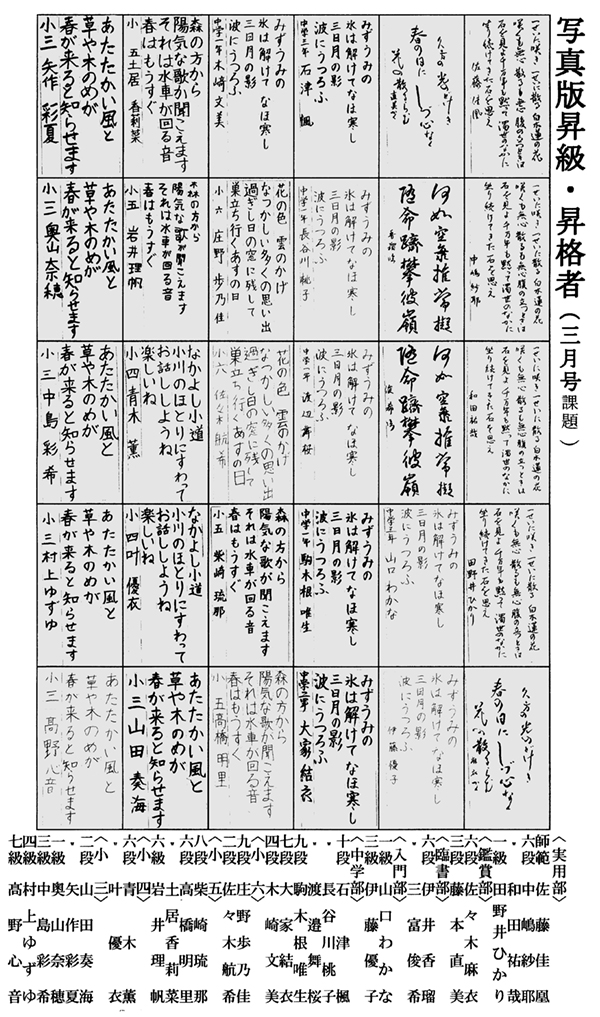 写真版昇級・昇格者(三月号課題)
一せいに咲き一せいに散る白木蓮の花
咲くも無心散るも無心腹の立つときは
石を見よ千万年も黙って濁世のなかに
坐り続けてきた石を思え
佐藤佳凰
久方の光のどけき
春の日にしづ心なく
花の散るらむ
みずうみの
氷は解けてなほ寒し
三日月の影
波にうつろふ
中学三年 石津楓
みずうみの
氷は解けてなほ寒し
三日月の影
波にうつろふ
中学二年 木崎文美
森の方から
陽気な歌が聞こえます
それは水車が回る音
春はもうすぐ
小五 土居香莉菜
あたたかい風と
草や木のめが
春が来ると知らせます
小三 矢作彩夏
一せいに咲き一せいに散る白木蓮の花
咲くも無心散るも無心腹の立つときは
石を見よ千万年も黙って濁世のなかに
坐り続けてきた石を思え
中嶋紗耶
何如空察推常擬
隨命躋攀彼嶺
みずうみの
氷は解けてなほ寒し
三日月の影
波にうつろふ
中学一年 長谷川桃子
花の色 雲のかげ
なつかしい多くの思い出
過ぎし日の空に残して
巣立ち行くあすの日
小六 庄野歩乃佳
森の方から
陽気な歌が聞こえます
それは水車が回る音
春はもうすぐ
小五 岩井理帆
あたたかい風と
草や木のめが
春が来ると知らせます
小三 奥山奈穂
一せいに咲き一せいに散る白木蓮の花
咲くも無心散るも無心腹の立つときは
石を見よ千万年も黙って濁世のなかに
坐り続けてきた石を思え
和田祐哉
何如空察推常擬
隨命躋攀彼嶺
みずうみの
氷は解けてなほ寒し
三日月の影
波にうつろふ
中学一年 渡邉舞桜
花の色 雲のかげ
なつかしい多くの思い出
過ぎし日の空に残して
巣立ち行くあすの日
小六 佐々木航希
なかよし小道
小川のほとりにすわって
お話ししようね
楽しいね
小四 青木薫
あたたかい風と
草や木のめが
春が来ると知らせます
小三 中島彩希
一せいに咲き一せいに散る白木蓮の花
咲くも無心散るも無心腹の立つときは
石を見よ千万年も黙って濁世のなかに
坐り続けてきた石を思え
田野井ひかり
みずうみの
氷は解けてなほ寒し
三日月の影
波にうつろふ
中学三年 山口わかな
みずうみの
氷は解けてなほ寒し
三日月の影
波にうつろふ
中学一年 駒木根唯生
森の方から
陽気な歌が聞こえます
それは水車が回る音
春はもうすぐ
小五 柴崎琉那
なかよし小道
小川のほとりにすわって
お話ししようね
楽しいね
小四 叶優衣
あたたかい風と
草や木のめが
春が来ると知らせます
小三 村上ゆずゆ
久方の光のどけき
春の日にしづ心なく
花の散るらむ
みずうみの
氷は解けてなほ寒し
三日月の影
波にうつろふ
伊藤優子
みずうみの
氷は解けてなほ寒し
三日月の影
波にうつろふ
中学三年 大家結衣
森の方から
陽気な歌が聞こえます
それは水車が回る音
春はもうすぐ
小五 高橋明里
あたたかい風と
草や木のめが
春が来ると知らせます
小三 山田奏海
あたたかい風と
草や木のめが
春が来ると知らせます
小三 高野心音
〈実用部〉
師範 佐藤佳凰
六段 中嶋紗耶
・ 和田祐哉
一級 田野井ひかり
〈鑑賞部〉
六段 佐々木麻衣
三段 藤本直美
〈臨書部〉
六段
〈入門部〉
一級 山口わかな
三級 伊藤優子
〈中学部〉
十段 石津楓
・ 長谷川桃子
・ 渡邉舞桜
九段 駒木根唯生
七段 大家結衣
・ 木崎文美
〈小六〉
九段 庄野歩乃佳
二段 佐々木航希
〈小五〉
八段 柴崎琉那
・ 高橋明里
六段 土居香莉菜
・ 岩井理帆
〈小四〉
六段 青木薫
・ 叶優衣
〈小三〉
二段 山田奏海
・ 矢作彩夏
一級 奥山奈穂
三級 中島彩希
四級 村上ゆずゆ
七級 高野心音